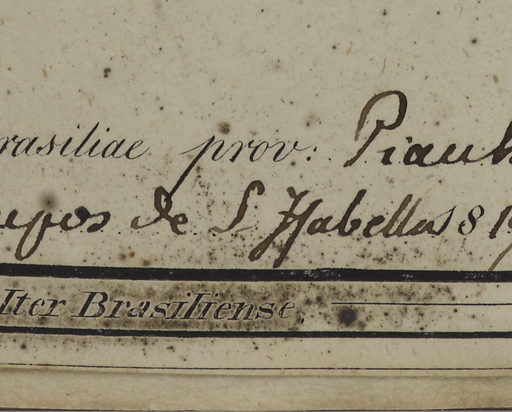 rasiliae prov. Piauh
pos de S Isabella 819
Iter Brasiliense.